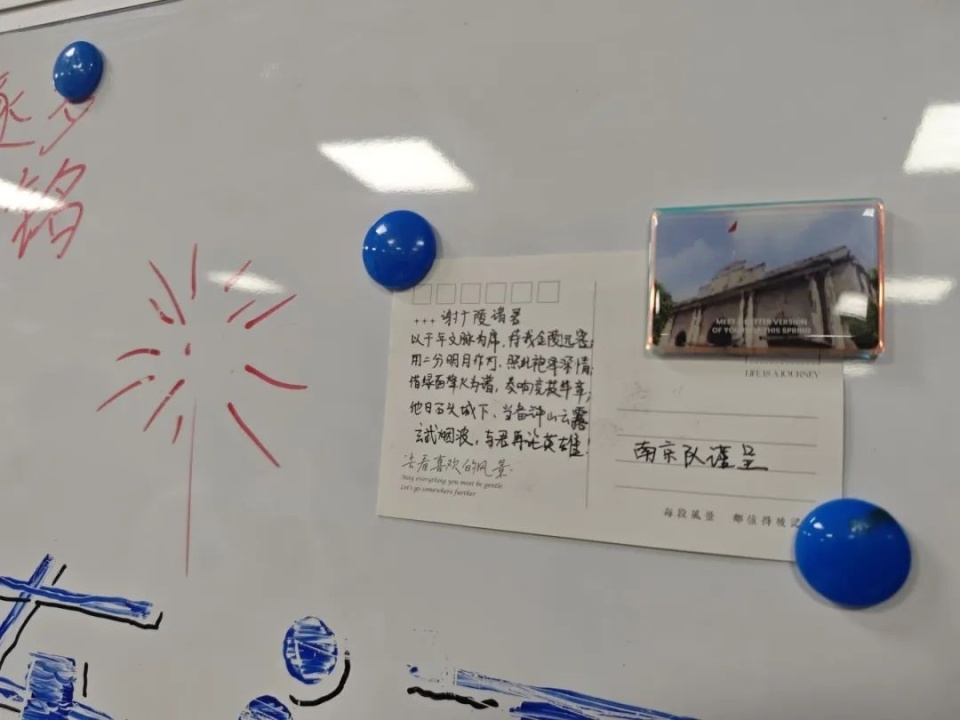 逐梦
铭
+++ 谢广陵诸君
以千年文脉为席,待我金陵远客;
用二分明月作灯,照此袍泽深情;
借绿茵烽火为谱,交响竞技华章;
他日石头城下,当备钟山云露
玄武烟波,与君再论英雄!
去看喜欢的风景
May everything you meet be gentle
Let's go somewhere further
MEET A BETTER VERSION
OF YOU THIS SPRING
LIFE IS A JOURNEY
南京队谨呈
每段風景